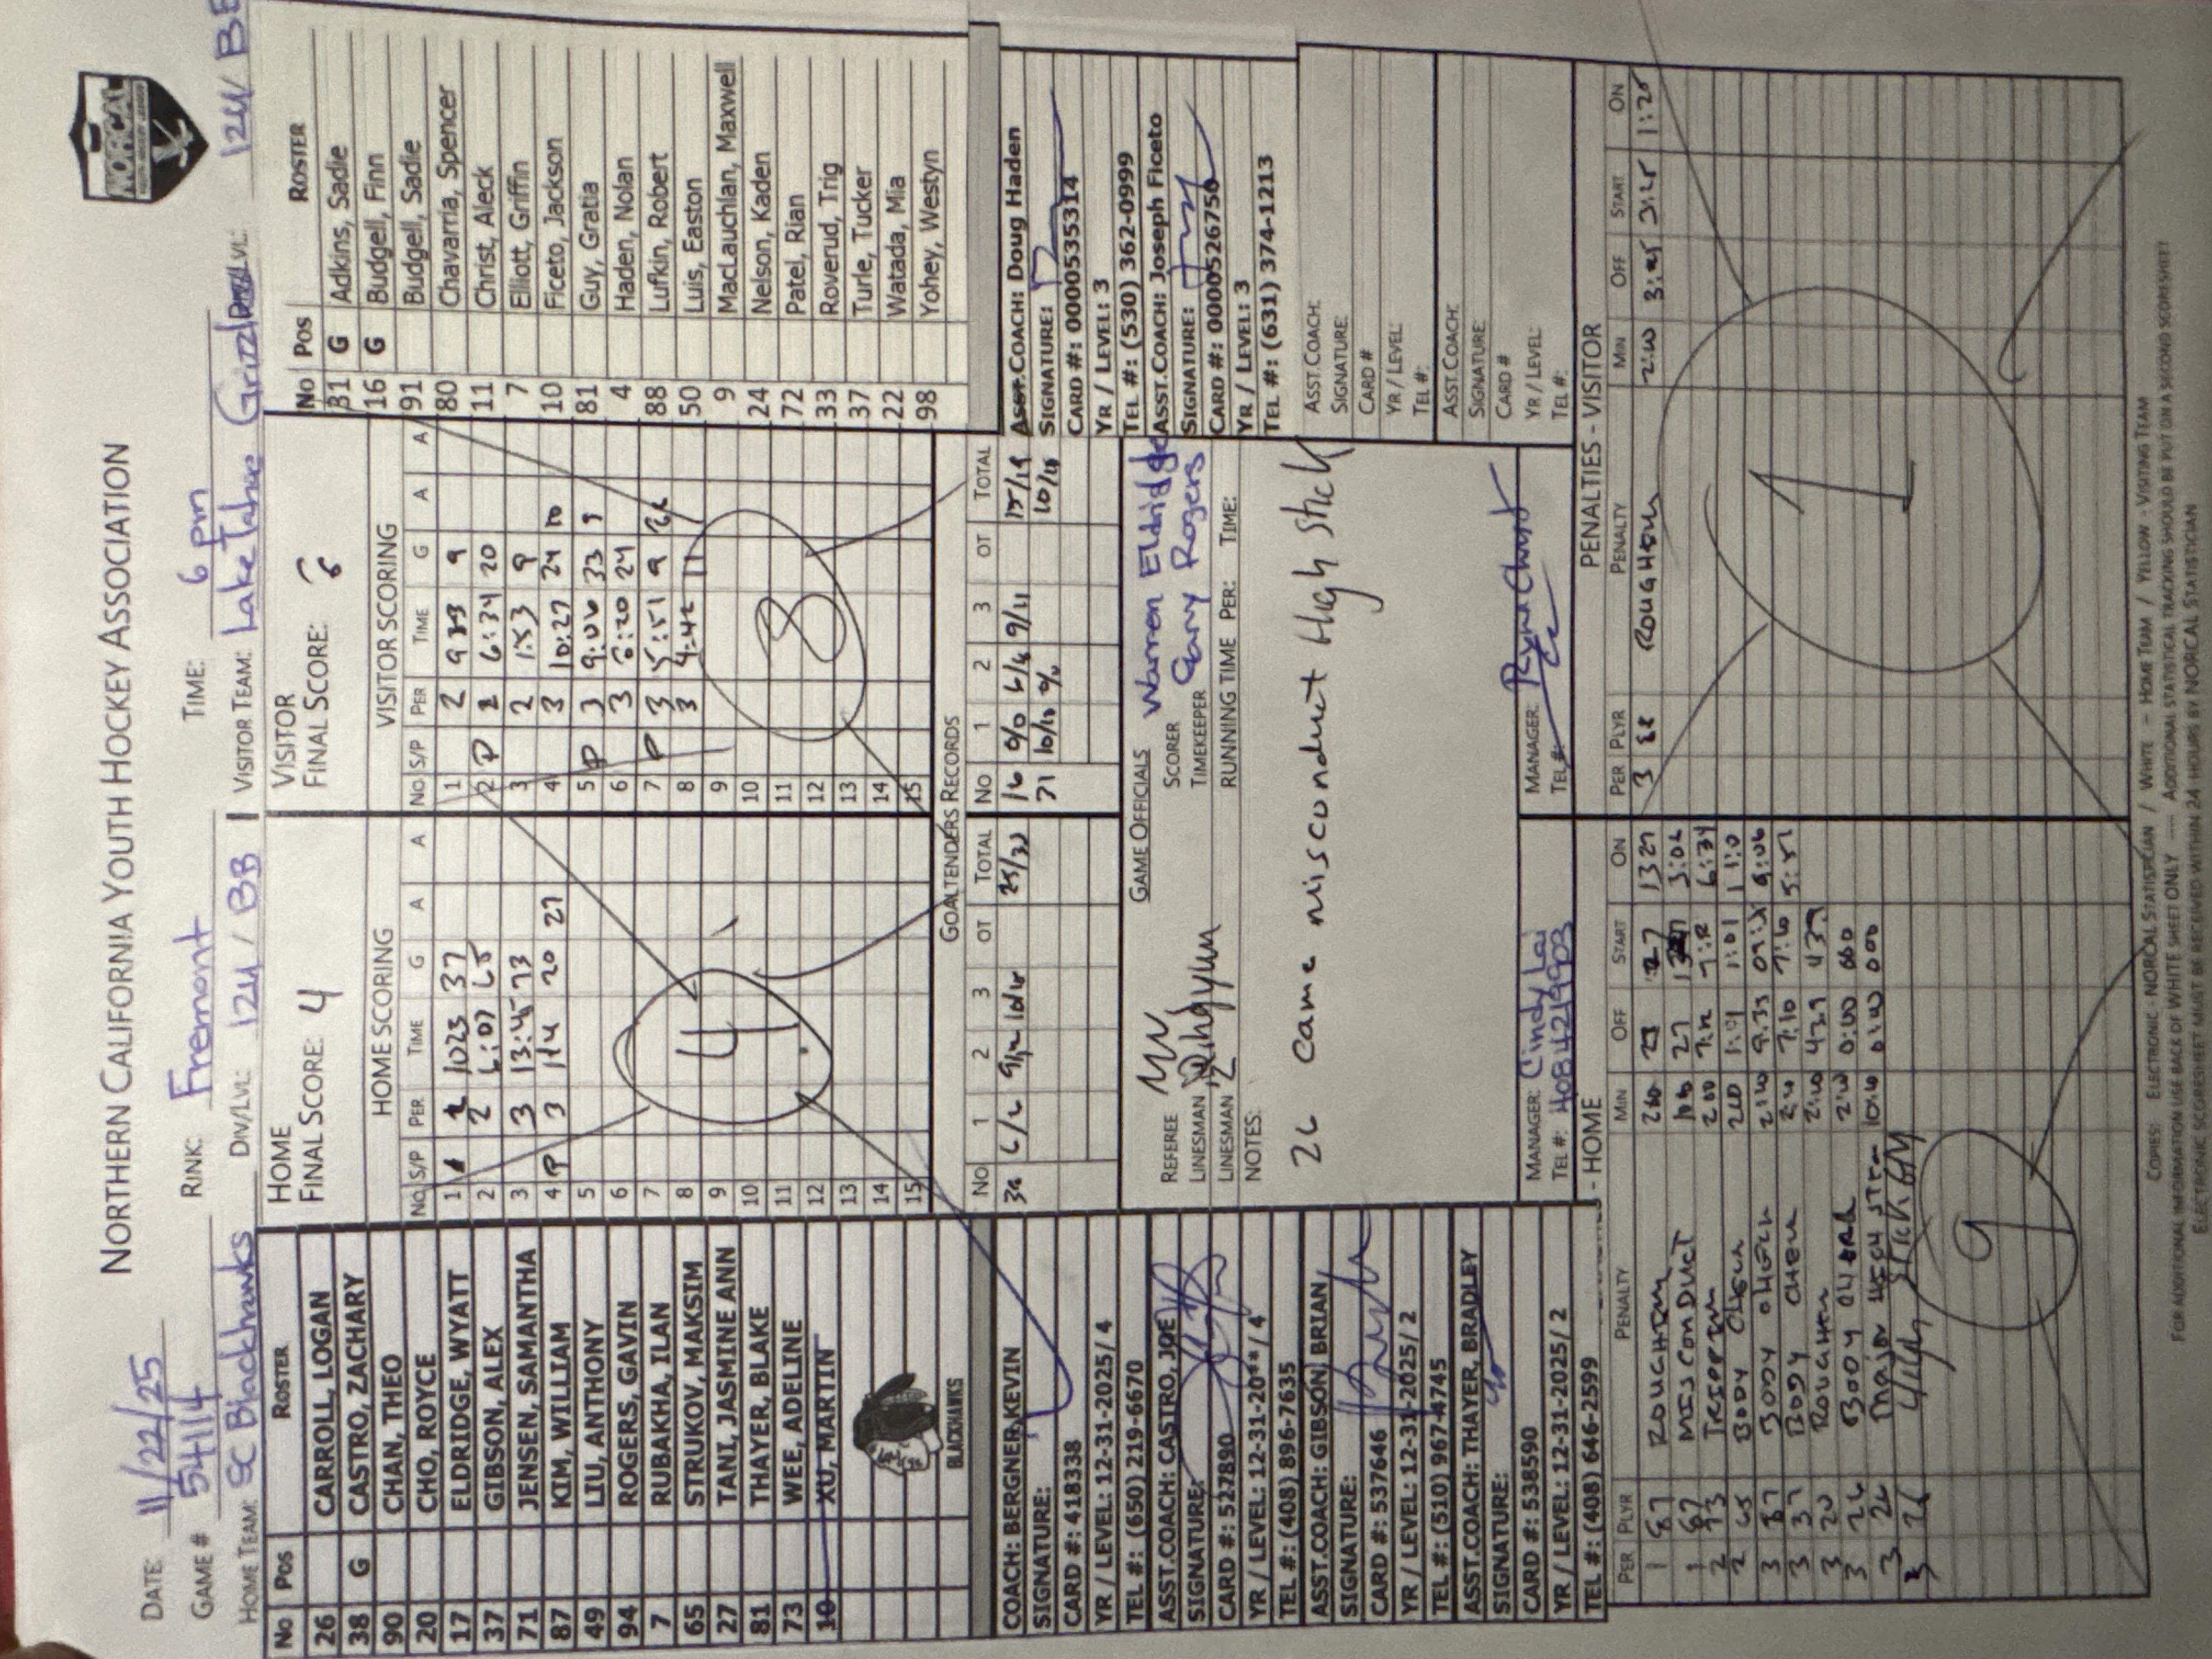 NORTHERN CALIFORNIA YOUTH HOCKEY ASSOCIATION
NORCAL
DATE: 11/22/25 RINK: Fremont TIME: 6 pm
GAME # 54114
HOME TEAM: SC Blackhawks DIV/LVL: 12U / BB VISITOR TEAM: Lake Tahoe Grizzlies LVL: 12U BB
No Pos ROSTER
26 CARROLL, LOGAN
38 G CASTRO, ZACHARY
90 CHAN, THEO
20 CHO, ROYCE
17 ELDRIDGE, WYATT
37 GIBSON, ALEX
71 JENSEN, SAMANTHA
87 KIM, WILLIAM
49 LIU, ANTHONY
94 ROGERS, GAVIN
7 RUBAKHA, ILAN
65 STRUKOV, MAKSIM
27 TANI, JASMINE ANN
81 THAYER, BLAKE
73 WEE, ADELINE
10 XU, MARTIN
BLACKHAWKS
COACH: BERGNER, KEVIN
SIGNATURE:
CARD #: 418338
YR / LEVEL: 12-31-2025/ 4
TEL #: (650) 219-6670
ASST.COACH: CASTRO, JOE
SIGNATURE:
CARD #: 527890
YR / LEVEL: 12-31-20** / 4
TEL #: (408) 896-7635
ASST.COACH: GIBSON, BRIAN
SIGNATURE:
CARD #: 537646
YR / LEVEL: 12-31-2025/ 2
TEL #: (510) 967-4745
ASST.COACH: THAYER, BRADLEY
SIGNATURE:
CARD #: 538590
YR / LEVEL: 12-31-2025/ 2
TEL #: (408) 646-2599
HOME
FINAL SCORE: 4
HOME SCORING
No. S/P PER TIME G A A
1 1023 37
2 2 6:07 65
3 3 13:45 73
4 P 3 1:14 20 27
5
6
7
8
9
10
11
12
13
14
15
4
VISITOR
FINAL SCORE: 8
VISITOR SCORING
No. S/P PER TIME G A A
1 2 9
2 P 2 6:34 20
3 2 1:53 9
4 3 10:27 24 10
5 P 3 9:06 33 9
6 3 8:20 24
7 P 3 5:51 9 22
8 3 4:42 11
9
10
11
12
13
14
15
8
GOALTENDERS RECORDS
No 1 2 3 OT TOTAL No 1 2 3 OT TOTAL
6/6 10/16 16 0/0 9/11 15/19
10/10
GAME OFFICIALS
REFEREE
LINESMAN
LINESMAN
SCORER Warren Eldridge
TIMEKEEPER Gary Rogers
RUNNING TIME PER: TIME:
NOTES:
26 Game misconduct High Stick
MANAGER: Cindy Lai
TEL #: 4084219903
MANAGER: Ryan Christ
TEL #:
No Pos ROSTER
31 G Adkins, Sadie
16 G Budgell, Finn
91 Budgell, Sadie
80 Chavarria, Spencer
11 Christ, Aleck
7 Elliott, Griffin
10 Ficeto, Jackson
81 Guy, Gratia
4 Haden, Nolan
88 Lufkin, Robert
50 Luis, Easton
9 MacLauchlan, Maxwell
24 Nelson, Kaden
72 Patel, Rian
33 Roverud, Trig
37 Turle, Tucker
22 Watada, Mia
98 Yohey, Westyn
Asst.COACH: Doug Haden
SIGNATURE:
CARD #: 0000535353314
YR / LEVEL: 3
TEL #: (530) 362-0999
ASST.COACH: Joseph Ficeto
SIGNATURE:
CARD #: 0000526750
YR / LEVEL: 3
TEL #: (631) 374-1213
ASST.COACH:
SIGNATURE:
CARD #
YR / LEVEL:
TEL #:
ASST.COACH:
SIGNATURE:
CARD #
YR / LEVEL:
TEL #:
- HOME
PER PLYR PENALTY MIN OFF START ON
1 87 ROUGHING 200 27 1327
1 87 MISCONDUCT 27 3:06
2 73 TRIPPING 200 7:12 7:12 6:34
2 65 BODY CHECK 1:01 1:01
3 87 BODY CHECK 9:35 9:06
3 37 BODY CHECK 7:10 7:10 5:51
3 20 ROUGHING 2:00 4:39 4:39
3 26 BODY CHECK 2:00 0:00 000
3 26 Major HIGH STICK 000
3 26
9
PENALTIES - VISITOR
PER PLYR PENALTY MIN OFF START ON
3 88 ROUGHING 2:00 3:25 3:25 1:25
1
COPIES: ELECTRONIC - NORCAL STATISTICIAN / WHITE – HOME TEAM / YELLOW - VISITING TEAM
FOR ADDITIONAL INFORMATION USE BACK OF WHITE SHEET ONLY ---- ADDITIONAL STATISTICAL TRACKING SHOULD BE PUT ON A SECOND SCORESHEET
ELECTRONIC SCORESHEET MUST BE RECEIVED WITHIN 24 HOURS BY NORCAL STATISTICIAN